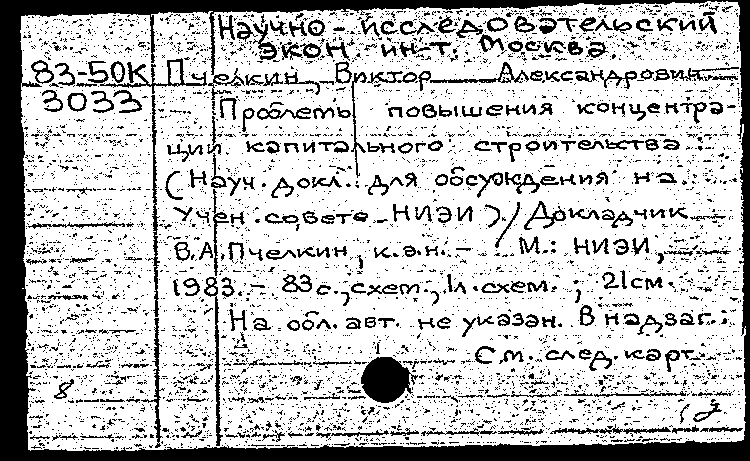 Научно-исследовательский
экон. ин-т. Москва.
83-50К Пчелкин, Виктор Александрович.
3033 Проблемы повышения концентра-
ции капитального строительства :
(Науч. докл. для обсуждения на
Учен. совете НИЭИ) / Докладчик
В.А.Пчелкин, к.э.н. – М.: НИЭИ,
1983. – 83 с., схем., 1 л. схем. ; 21 см.
На обл. авт. не указан. В надзаг.:
См. след. карт.
8